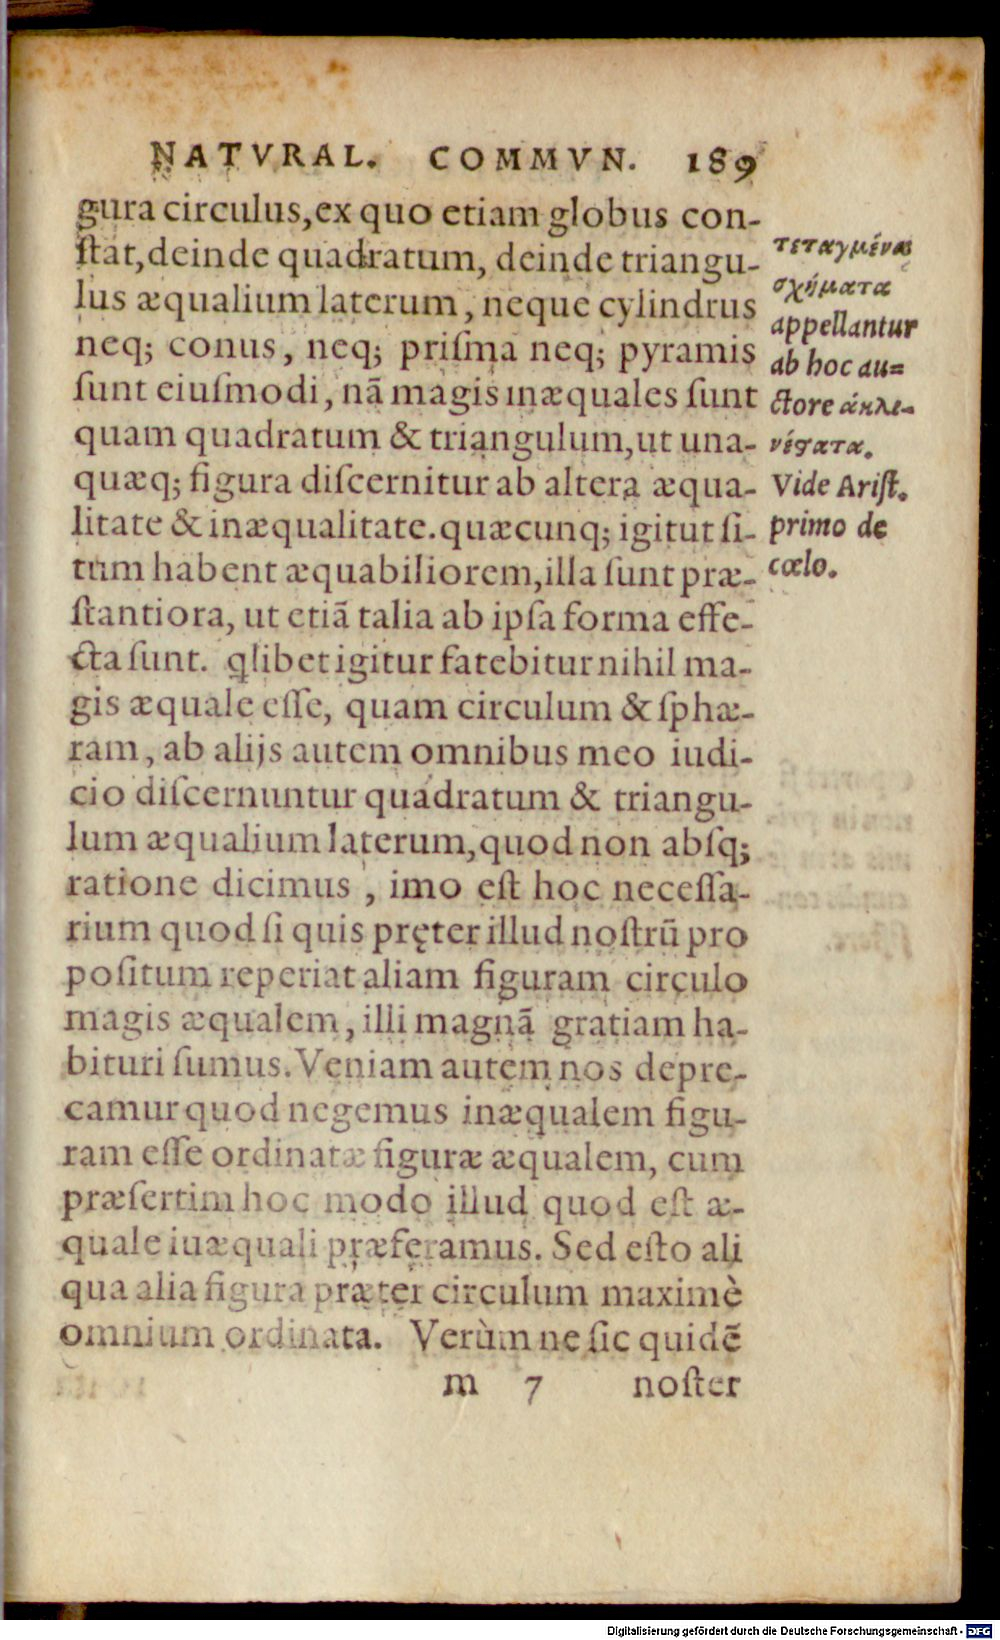 NATVRAL. COMMVN. 189
gura circulus, ex quo etiam globus con-
ſtat, deinde quadratum, deinde triangu-
lus æqualium laterum, neque cylindrus
neq; conus, neq; priſma neq; pyramis
ſunt eiuſmodi, nã magis inæquales ſunt
quam quadratum & triangulum, ut una-
quæq; figura diſcernitur ab altera æqua-
litate & inæqualitate. quæcunq; igitut ſi-
tum habent æquabiliorem, illa ſunt præ-
ſtantiora, ut etiã talia ab ipſa forma effe-
cta ſunt. ꝗlibet igitur fatebitur nihil ma-
gis æquale eſſe, quam circulum & ſphæ-
ram, ab alijs autem omnibus meo iudi-
cio diſcernuntur quadratum & triangu-
lum æqualium laterum, quod non abſq;
ratione dicimus, imo eſt hoc neceſſa-
rium quod ſi quis pręter illud noſtrũ pro
poſitum reperiat aliam figuram circulo
magis æqualem, illi magnã gratiam ha-
bituri ſumus. Veniam autem nos depre-
camur quod negemus inæqualem figu-
ram eſſe ordinatæ figuræ æqualem, cum
præſertim hoc modo illud quod eſt æ-
quale iuæquali præferamus. Sed eſto ali
qua alia figura præter circulum maximè
omnium ordinata. Verùm ne ſic quidẽ
m 7 noſter
τεταγμένως
σχήματα
appellantur
ab hoc au=
ctore ἀκλι-
νέϛατα.
Vide Ariſt.
primo de
cœlo.
Digitalisierung gefördert durch die Deutsche Forschungsgemeinschaft - DFG